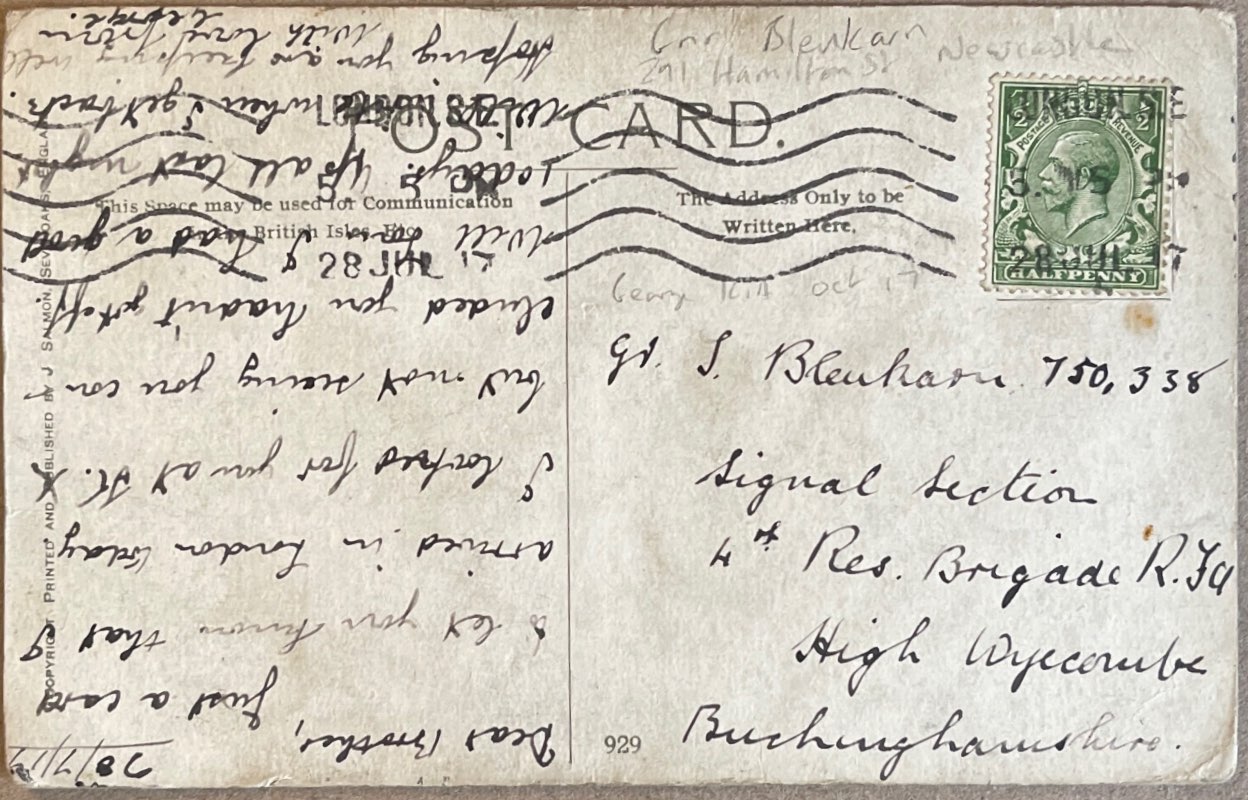 Gnr Blenkarn Newcastle
291 Hamilton St
POST CARD.
LONDON. S.E.
28 JUL
This Space may be used for Communication
British Isles, Etc.
The Address Only to be
Written Here.
HALFPENNY
oct 17
Gr. J. Blenkarn 750,338
Signal Section
4th Res. Brigade R.F.A
High Wyecombe
Buckinghamshire.
929
COPYRIGHT PRINTED AND PUBLISHED BY J SALMON, SEVENOAKS, ENGLAND
28/7/17
Dear Brother,
Just a card
to let you know that I
arrived in London today
I looked for you at H.
but not seeing you con
cluded you hadn't got off
Will I had a good
today. Up all last night
when I get back.
Hoping you are keeping well
With love from
George.